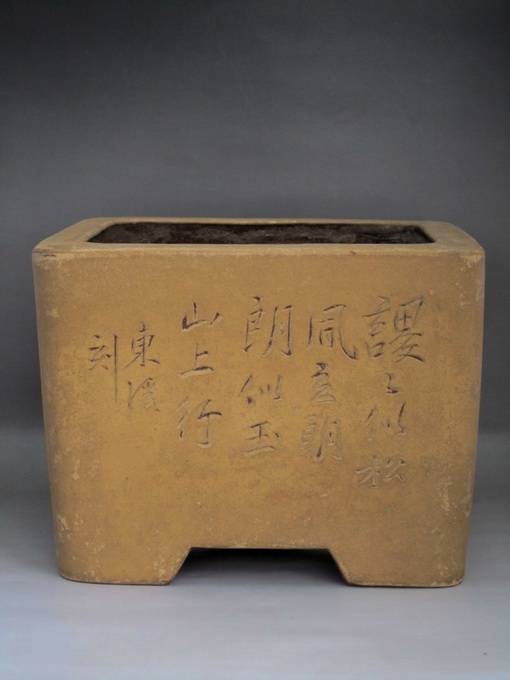 謖〻似松
風立朗
朗似玉
山上行
東溪
刻